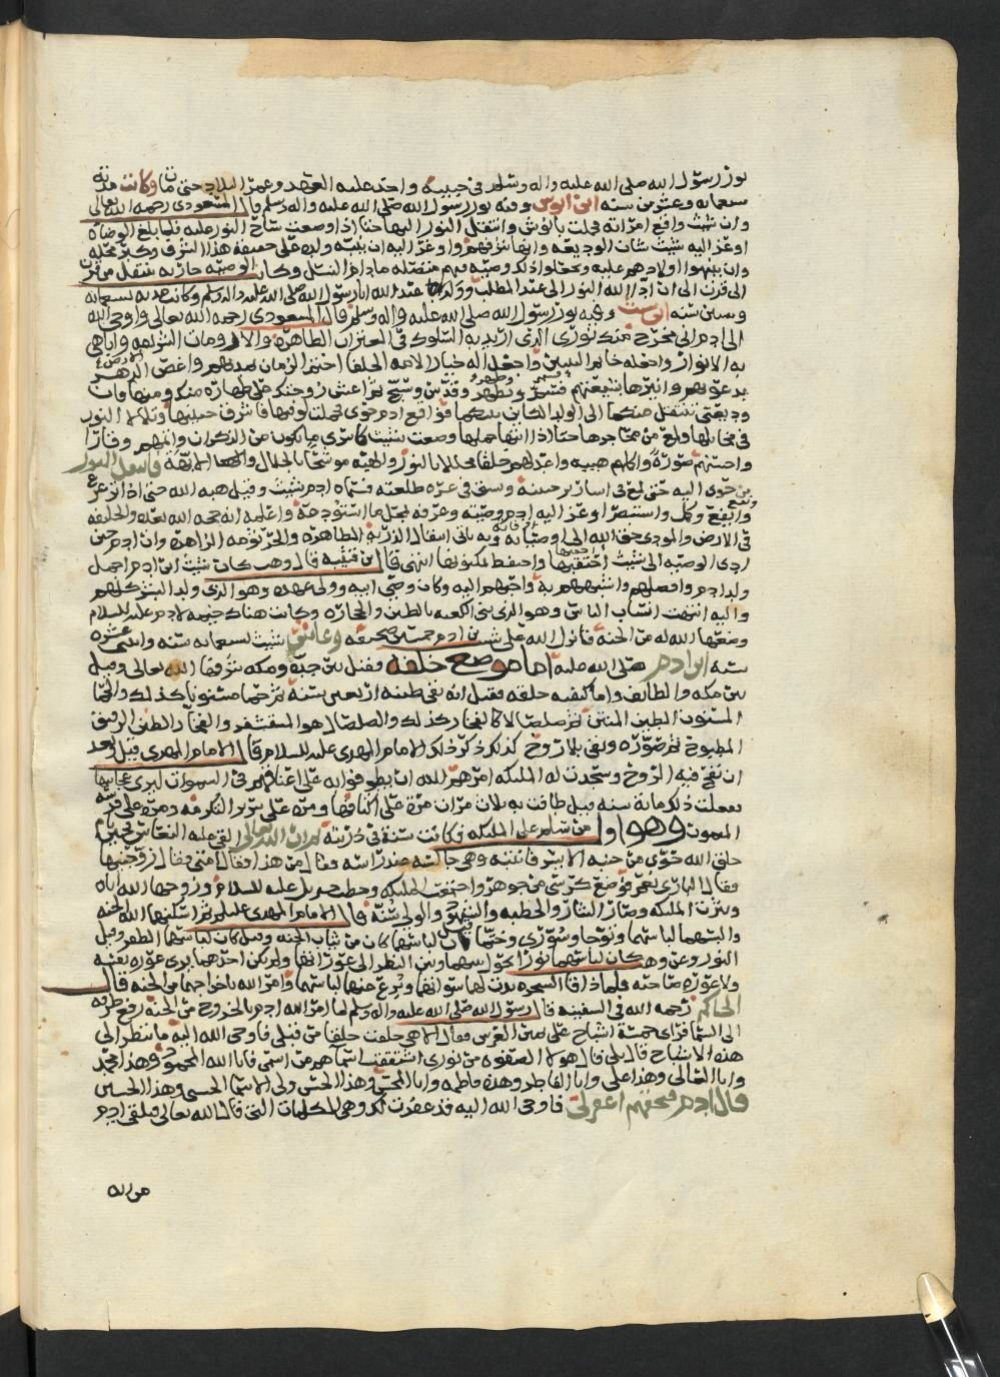 نور رسول الله صلى الله عليه واله وسلم في جبينه واخذ عليه العهد وعمر البلاد حتى مات وكانت مدته
سبعمايه وعشرين سنه ابن انوش وفيه نور رسول الله صلى الله عليه واله وسلم قال المسعودي رحمه الله تعالى
وان شيث واقع امراته فحملت بانوش وانتقل النور اليها حتى اذا وضعت لاح النور عليه فلما بلغ الوصاه
اوعز اليه شيث شان الوديعه وانها شرفهم واوعز اليه ان ينبه ولده على حقيقه هذا الشرف وكبر محله
وان ينبهوا اولادهم عليه ويجعلوا ذلك وصيه فيهم منتقله مادام النسل وكانت الوصيه جاريه تنتقل من قرن
الى قرن الى ان ادا الله النور الى عبد المطلب وولده عبد الله ابا رسول الله صلى الله عليه واله وسلم وكانت مدته تسعمايه
وستين سنه ابن شيث وفيه نور رسول الله صلى الله عليه واله وسلم قال المسعودي رحمه الله تعالى واوحى الله
الى ادم اني مخرج منك نوري الذي اريد به السلوك في القنوات الطاهره والارومات الشريفه واباهي
به الانوار واجعله خاتم النبيين واجعل اله خيار الايمه الخلفا اختم الزمان بمدتهم واغص الارض
بدعوتهم وانشرها بشيعتهم فشمر وتطهر وقدس وسبح ثم اغش زوجتك على طهاره منك ومنها فان
وديعتي تنتقل منكما الى الولد الكاين بينكما فواقع ادم حوى فحملت لوقتها فاشرق جبينها وتلالا النور
في مخايلها ولمع من محاجرها حتى اذا انتها حملها وضعت شيث كاسرى ما يكون من الذكران واتمهم وقارا
واحسنهم صوره واكملهم هيبه واعدلهم خلقا مجللا بالنور والهيبه موشحا بالجلال والابهه فانتقل النور
من حوى اليه حتى لمع في اسارير جبينه وبسق في غره طلعته فسماه ادم شيث وقيل هبه الله حتى اذا ترعرع
وايفع وكمل واستبصر اوعز اليه ادم وصيته وعرفه محل ما استودعه واعلمه انه حجه الله بعده والخليفه
في الارض والمودي حق الله الى اوصيايه وانه ثاني انتقال الذريه الطاهره والجرثومه الزاهره وان ادم حين
ادى الوصيه الى شيث احتقبها واحتفظ بمكنونها انتهى قال ابن قتيبه قال وهب كان شيث ابن ادم اجمل
ولد ادم وافضلهم واشبههم به واحبهم اليه وكان وصي ابيه وولي عهده وهو الذي ولد البشر كلهم
واليه انتهت انساب الناس وهو الذي بنى الكعبه بالطين والحجاره وكانت هناك خيمه لادم عليه السلام
وضعها الله له من الجنه فانزل الله على شيث بن ادم خمسين صحيفه وعاش شيث تسعمايه سنه واثنى عشره
سنه ابن ادم صلى الله عليه اما موضع خلقه فقيل بين جبه ومكه شرفها الله تعالى وقيل
بين مكه والطايف واما كيفيه خلقه فقيل انه بقى طينه اربعين سنه ثم حما مسنونا كذلك والحما
المسنون الطين المنتن ثم صلصالا كالفخار كذلك والصلصال هو المتقشر والفخار الطين الرقيق
المطبوخ ثم صوره وبقى بلا روح كذلك ذكر ذلك الامام المهدي عليه السلام قال الامام المهدي قيل وبعد
ان نفخ فيه الروح وسجدت له الملايكه امرهم الله ان يطوفوا به على اعناقهم في السموات ليرى عجايبها
ففعلت ذلك مايه سنه قيل طافت به ثلاث مرات مره على اكتافها ومره على سرير الكرامه ومره على فرسه
الميمون وهو اول من سلم على الملايكه فكانت سنه في ذريته ثم ان الله تعالى القى عليه النعاس
خلق الله حوى من جنبه الايسر فانتبه وهي جالسه عند راسه فقال لمن هذه فقال امتي فقال زوجنيها
فقال الباري نعم فوضع كرسي من جوهر واجتمعت الملايكه وخطب جبريل عليه السلام وزوجها الله اياه
ونثرت الملايكه وصار النثار والخطبه والشهود والولي سنه قال الامام المهدي عليه السلام ثم اسكنهما الله الجنه
والبسهما لباسهما وتوجا وسورى وختما قيل كان لباسهما كان من ثياب الجنه وقيل كان لباسهما الظفر وقيل
النور وعن وهب كان لباسهما نورا يحول بينهما وبين النظر الى عوراتهما ولم يكن احدهما يرى عوره نفسه
ولا عوره صاحبه فلما ذاقا الشجره بدت لهما سواتهما ونزع عنهما لباسهما وامر الله باخراجهما من الجنه قال
الحاكم رحمه الله في السفينه قال رسول الله صلى الله عليه واله وسلم لما امر الله ادم بالخروج من الجنه رفع طرفه
الى السما فراى خمسه اشباح على يمين العرش فقال الاهي خلقت خلقا من قبلي فاوحى الله اليه ما تنظر الى
هذه الاشباح قال بلى قال هولا الصفوه من نوري اشتققت اسماهم من اسمي فانا الله المحمود وهذا محمد
وانا العالي وهذا علي وانا الفاطر وهذه فاطمه وانا المحسن وهذا الحسن ولي الاسما الحسنى وهذا الحسين
قال ادم فبحقهم اغفر لي فاوحى الله اليه قد غفرت لك وهي الكلمات التي قال الله تعالى فتلقى ادم
من ربه